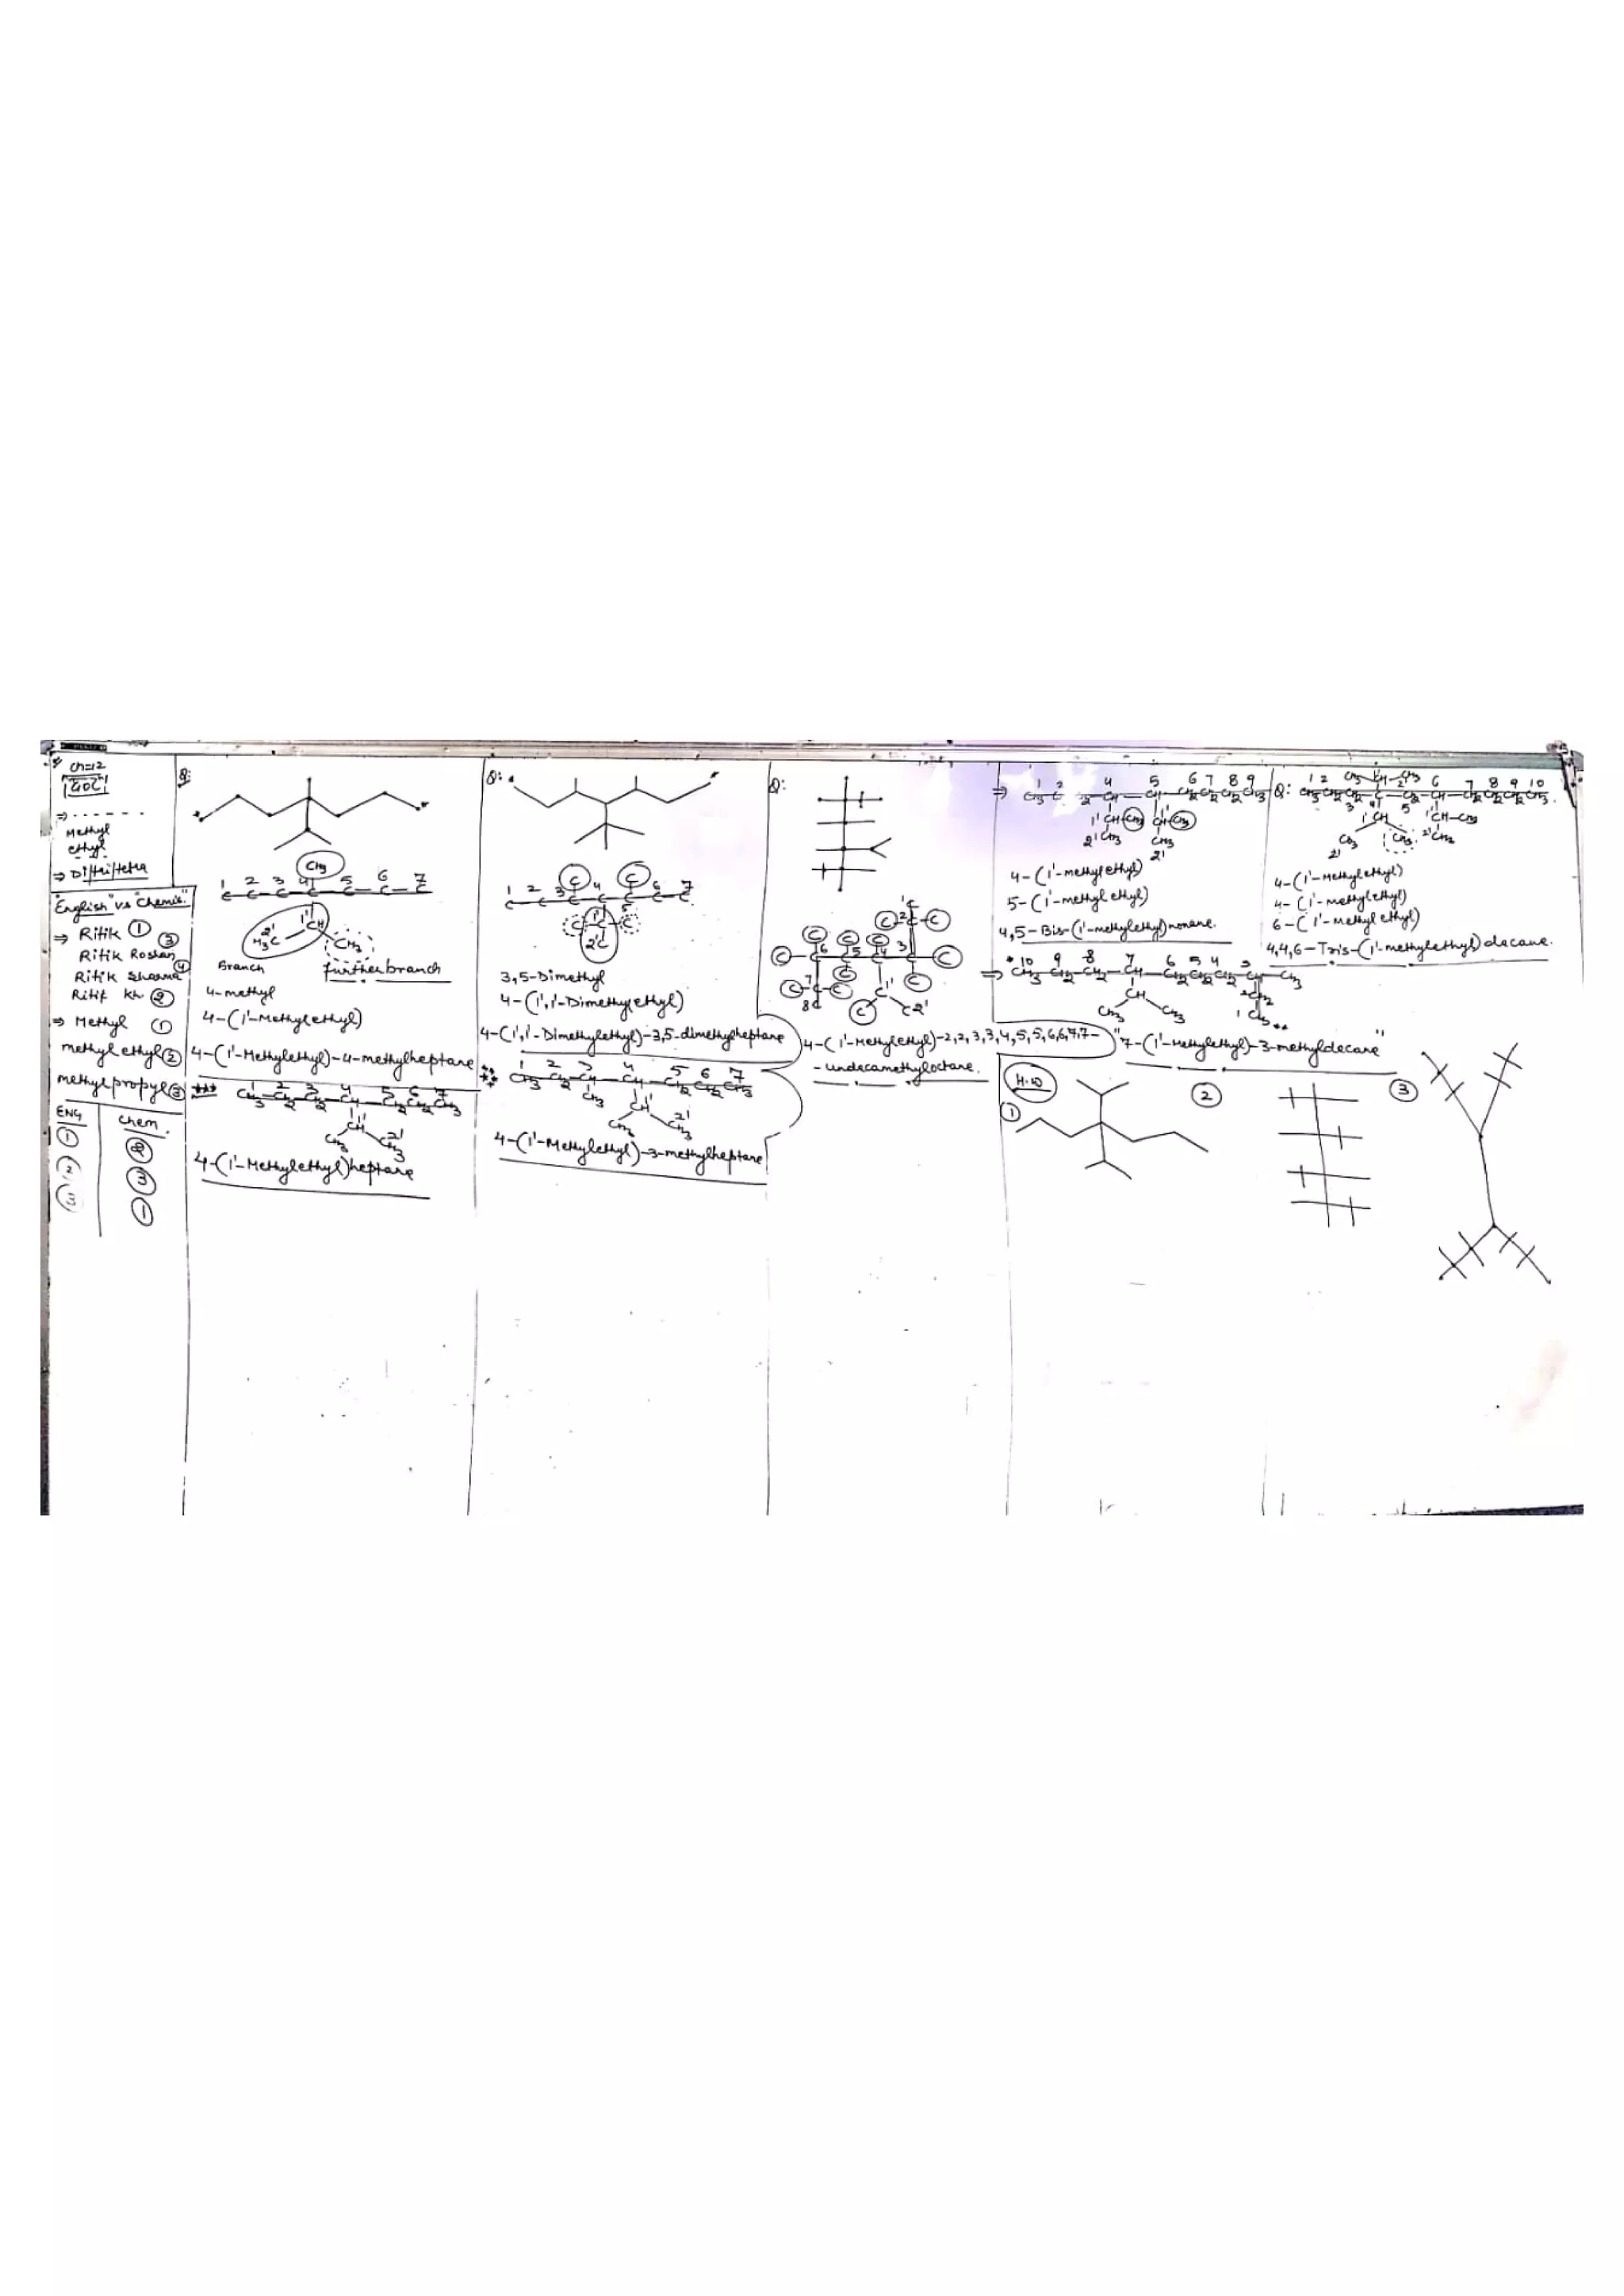 Ch=12
GOC
⇒ - - - - - -
Methyl
ethyl
⇒ Di/tri/tetra
"English" vs "Chemis."
⇒ Ritik ①
Ritik Roshan ③
Ritik Sharma ④
Ritik Kr ②
⇒ Methyl ①
methyl ethyl ②
methyl propyl ③
ENG Chem.
① ②
② ③
③ ①
Q:
CH3
1 2 3 4 5 6 7
C-C-C-C-C-C-C
1' CH
2' H3C
CH3
Branch further branch
4-methyl
4-(1'-Methylethyl)
4-(1'-Methylethyl)-4-methylheptane
*** 1 2 3 4 5 6 7
CH3-CH2-CH2-CH-CH2-CH2-CH3
1' CH
CH3 2' CH3
4-(1'-Methylethyl)heptane
Q:
C C
1 2 3 4 5 6 7
C-C-C-C-C-C-C
C-C-C
2' C
3,5-Dimethyl
4-(1',1'-Dimethylethyl)
4-(1',1'-Dimethylethyl)-3,5-dimethylheptane
1 2 3 4 5 6 7
CH3-CH2-CH-CH-CH2-CH2-CH3
CH3 1' CH
CH3 2' CH3
4-(1'-Methylethyl)-3-methylheptane
Q:
1 C
C 2 C C
C C C
C C 6 5 4 3 C
C C 1' C
C 7 C C
8 C C C 2'
4-(1'-Methylethyl)-2,2,3,3,4,5,5,6,6,7,7-
-undecamethyloctane.
⇒ 1 2 4 5 6 7 8 9
CH3-C 2-CH-CH-CH2-CH2-CH2-CH3
1' CH-CH3 CH-CH3
2' CH3 CH3
2'
4-(1'-methylethyl)
5-(1'-methylethyl)
4,5-Bis-(1'-methylethyl)nonane.
Q: 1 2 CH3-CH-CH3 6 7 8 9 10
CH3-CH2-CH2-C-CH2-CH-CH2-CH2-CH2-CH3.
3 4 5
1' CH 1' CH-CH3
CH3 CH3 2' CH3
2'
4-(1'-Methylethyl)
4-(1'-methylethyl)
6-(1'-methylethyl)
4,4,6-Tris-(1'-methylethyl)decane.
⇒ 10 9 8 7 6 5 4 3
CH3-CH2-CH2-CH-CH2-CH2-CH2-CH-CH3
CH 2 CH2
CH3 CH3 1 CH3
"7-(1'-Methylethyl)-3-methyldecane"
H.W
① ② ③